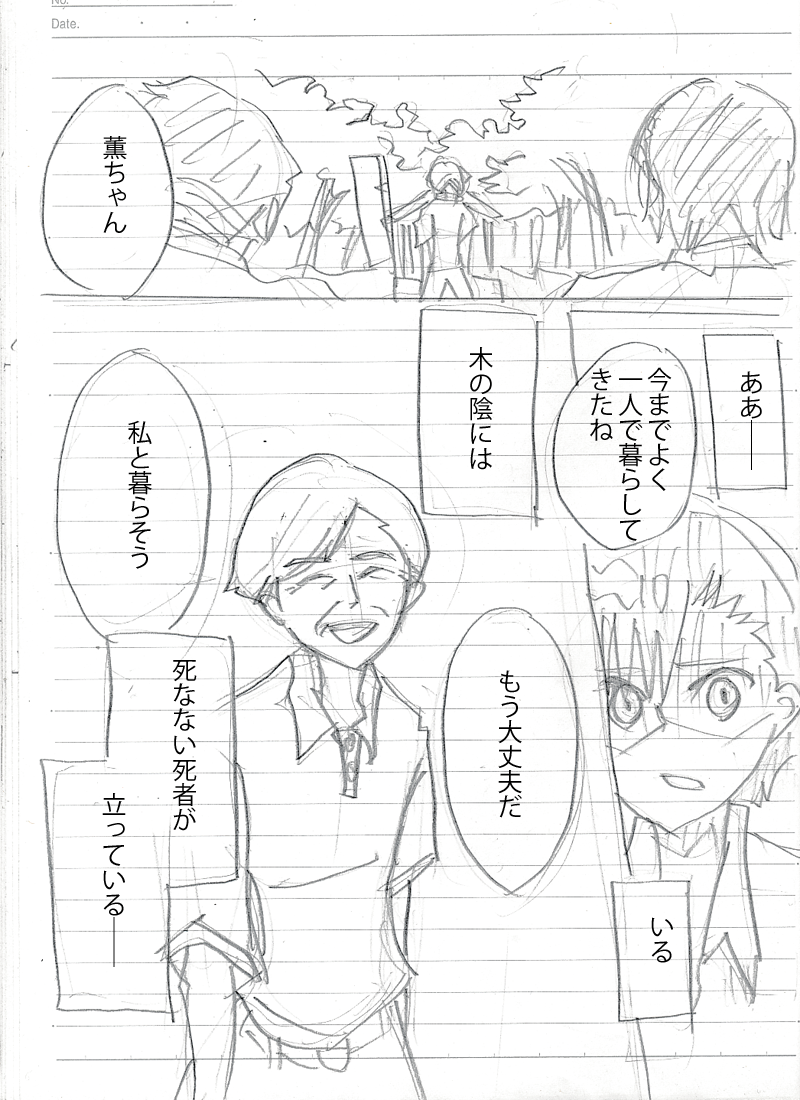 No.
Date.
薫ちゃん
ああ――
今までよく
一人で暮らして
きたね
いる
木の陰には
もう大丈夫だ
私と暮らそう
死なない死者が
立っている――